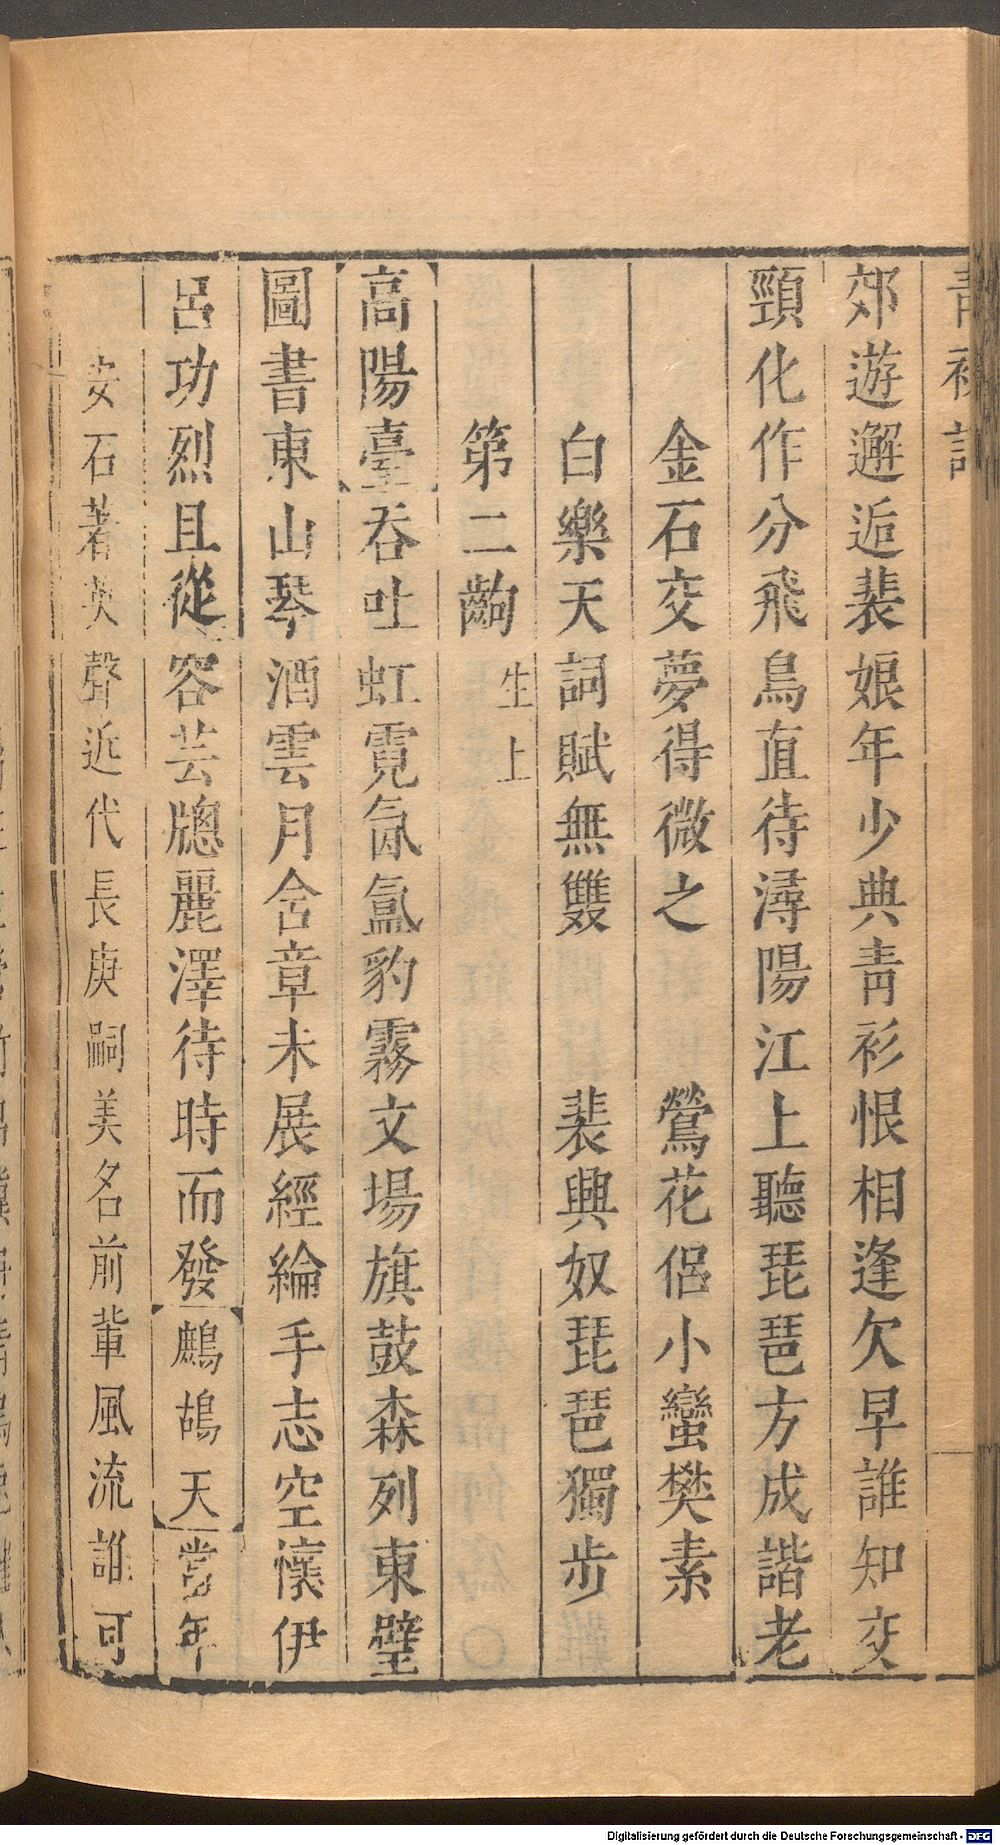 青衫記
郊遊邂逅裴娘年少典青衫恨相逢欠早誰知交
頸化作分飛鳥直待潯陽江上聽琵琶方成諧老
金石交夢得微之　鶯花侶小蠻樊素
白樂天詞賦無雙　裴興奴琵琶獨步
第二齣 生上
高陽臺吞吐虹霓氤氳豹霧文場旗鼓森列東壁
圖書東山琴酒雲月含章未展經綸手志空懷伊
呂功烈且從容芸牕麗澤待時而發鷓鴣天當年
安石著英聲近代長庚嗣美名前輩風流誰可
Digitalisierung gefördert durch die Deutsche Forschungsgemeinschaft - DFG